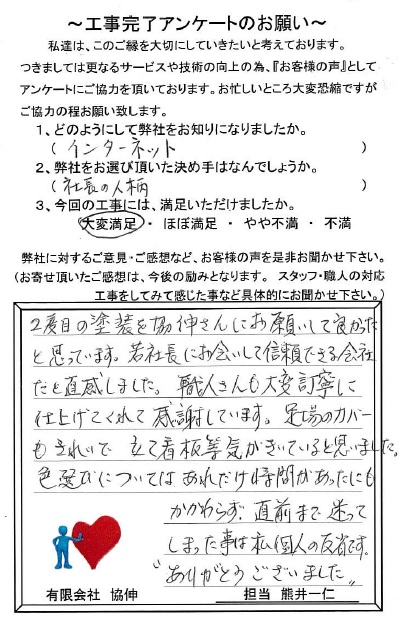 ～工事完了アンケートのお願い～
私達は、このご縁を大切にしていきたいと考えております。
つきましては更なるサービスや技術の向上の為、『お客様の声』として
アンケートにご協力を頂いております。お忙しいところ大変恐縮ですが
ご協力の程お願い致します。
1、どのようにして弊社をお知りになりましたか。
( インターネット )
2、弊社をお選び頂いた決め手はなんでしょうか。
( 社長の人柄 )
3、今回の工事には、満足いただけましたか。
大変満足 ・ ほぼ満足 ・ やや不満 ・ 不満
弊社に対するご意見・ご感想など、お客様の声を是非お聞かせ下さい。
(お寄せ頂いたご感想は、今後の励みとなります。 スタッフ・職人の対応
工事をしてみて感じた事など具体的にお聞かせ下さい。)
2度目の塗装を協伸さんにお願いして良かった
と思っています。若社長にお会いして信頼できる会社
だと直感しました。職人さんも大変訂寧に
仕上げてくれて感謝しています。足場のカバー
もきれいで立て看板等気がきいていると思いました。
色選びについてはあれだけ時間があったにも
かかわらず、直前まで迷って
しまった事は私個人の反省です。
"ありがとうございました"
有限会社 協伸
担当 熊井一仁